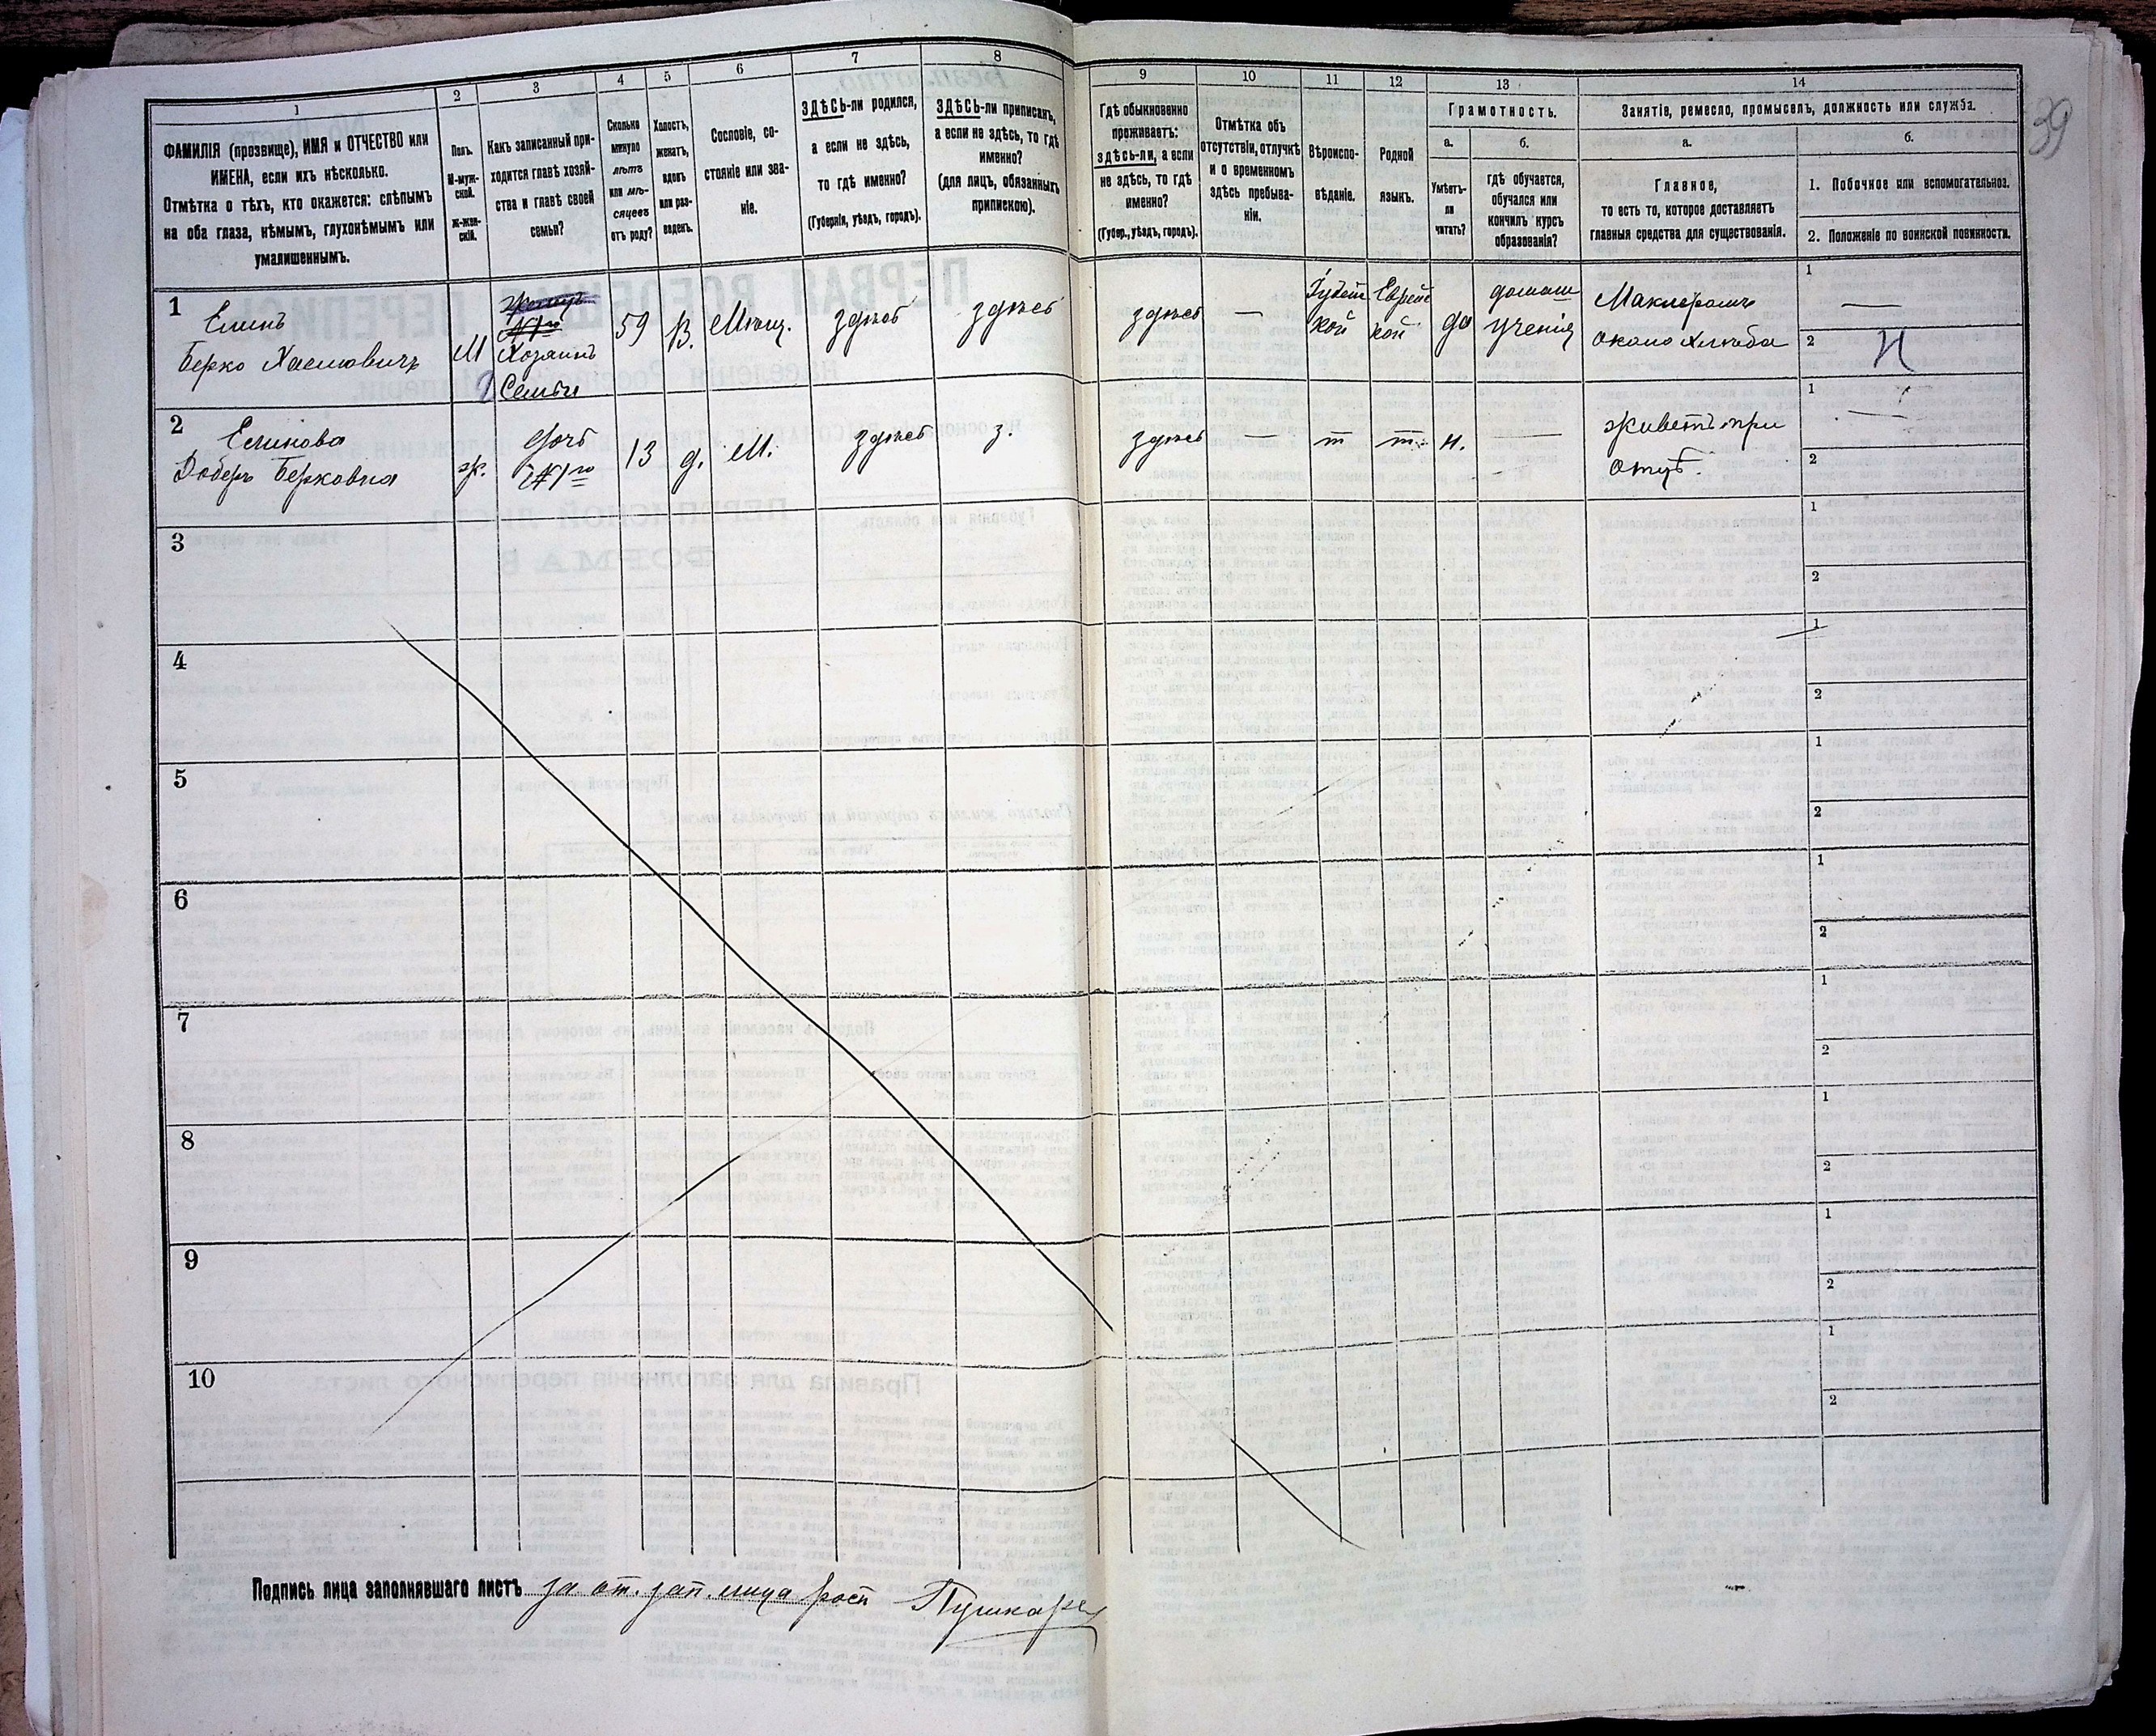 39
1
2
3
4
5
6
7
8
9
10
11
12
13
14
ФАМИЛІЯ (прозвище), ИМЯ и ОТЧЕСТВО или
ИМЕНА, если ихъ нѣсколько.
Отмѣтка о тѣхъ, кто окажется: слѣпымъ
на оба глаза, нѣмымъ, глухонѣмымъ или
умалишеннымъ.
Полъ.
М-муж-
ской.
Ж-жен-
скій.
Какъ записанный при-
ходится главѣ хозяй-
ства и главѣ своей
семьи?
Сколько
минуло
лѣтъ
или мѣ-
сяцевъ
отъ роду?
Холостъ,
женатъ,
вдовъ
или раз-
веденъ.
Сословіе, со-
стояніе или зва-
ніе.
ЗДѢСЬ-ли родился,
а если не здѣсь,
то гдѣ именно?
(Губернія, уѣздъ, городъ).
ЗДѢСЬ-ли приписанъ,
а если не здѣсь, то гдѣ
именно?
(для лицъ, обязанныхъ
припискою).
Гдѣ обыкновенно
проживаетъ:
здѣсь-ли, а если
не здѣсь, то гдѣ
именно?
(Губер., уѣздъ, городъ).
Отмѣтка объ
отсутствіи, отлучкѣ
и о временномъ
здѣсь пребыва-
ніи.
Вѣроиспо-
вѣданіе.
Родной
языкъ.
Грамотность.
а.
Умѣетъ-
ли
читать?
б.
гдѣ обучается,
обучался или
кончилъ курсъ
образованія?
Занятіе, ремесло, промыселъ, должность или служба.
а.
Главное,
то есть то, которое доставляетъ
главныя средства для существованія.
б.
1. Побочное или вспомогательное.
2. Положеніе по воинской повинности.
1
Берко
М
Хозяинъ
Семьи
59
В.
Мѣщ.
здѣсь
здѣсь
здѣсь
—
кой
кой
да
домаш
ученія
около хлѣба
1 —
2 Н
2
Берковна
ж.
дочь
№ 1го
13
д.
М.
здѣсь
з.
здѣсь
—
т
т
н.
—
живетъ при
отцѣ.
1 —
2
3
1
2
4
1
2
5
1
2
6
1
2
7
1
2
8
1
2
9
1
2
10
1
2
Подпись лица заполнявшаго листъ за от. зап. лица росп